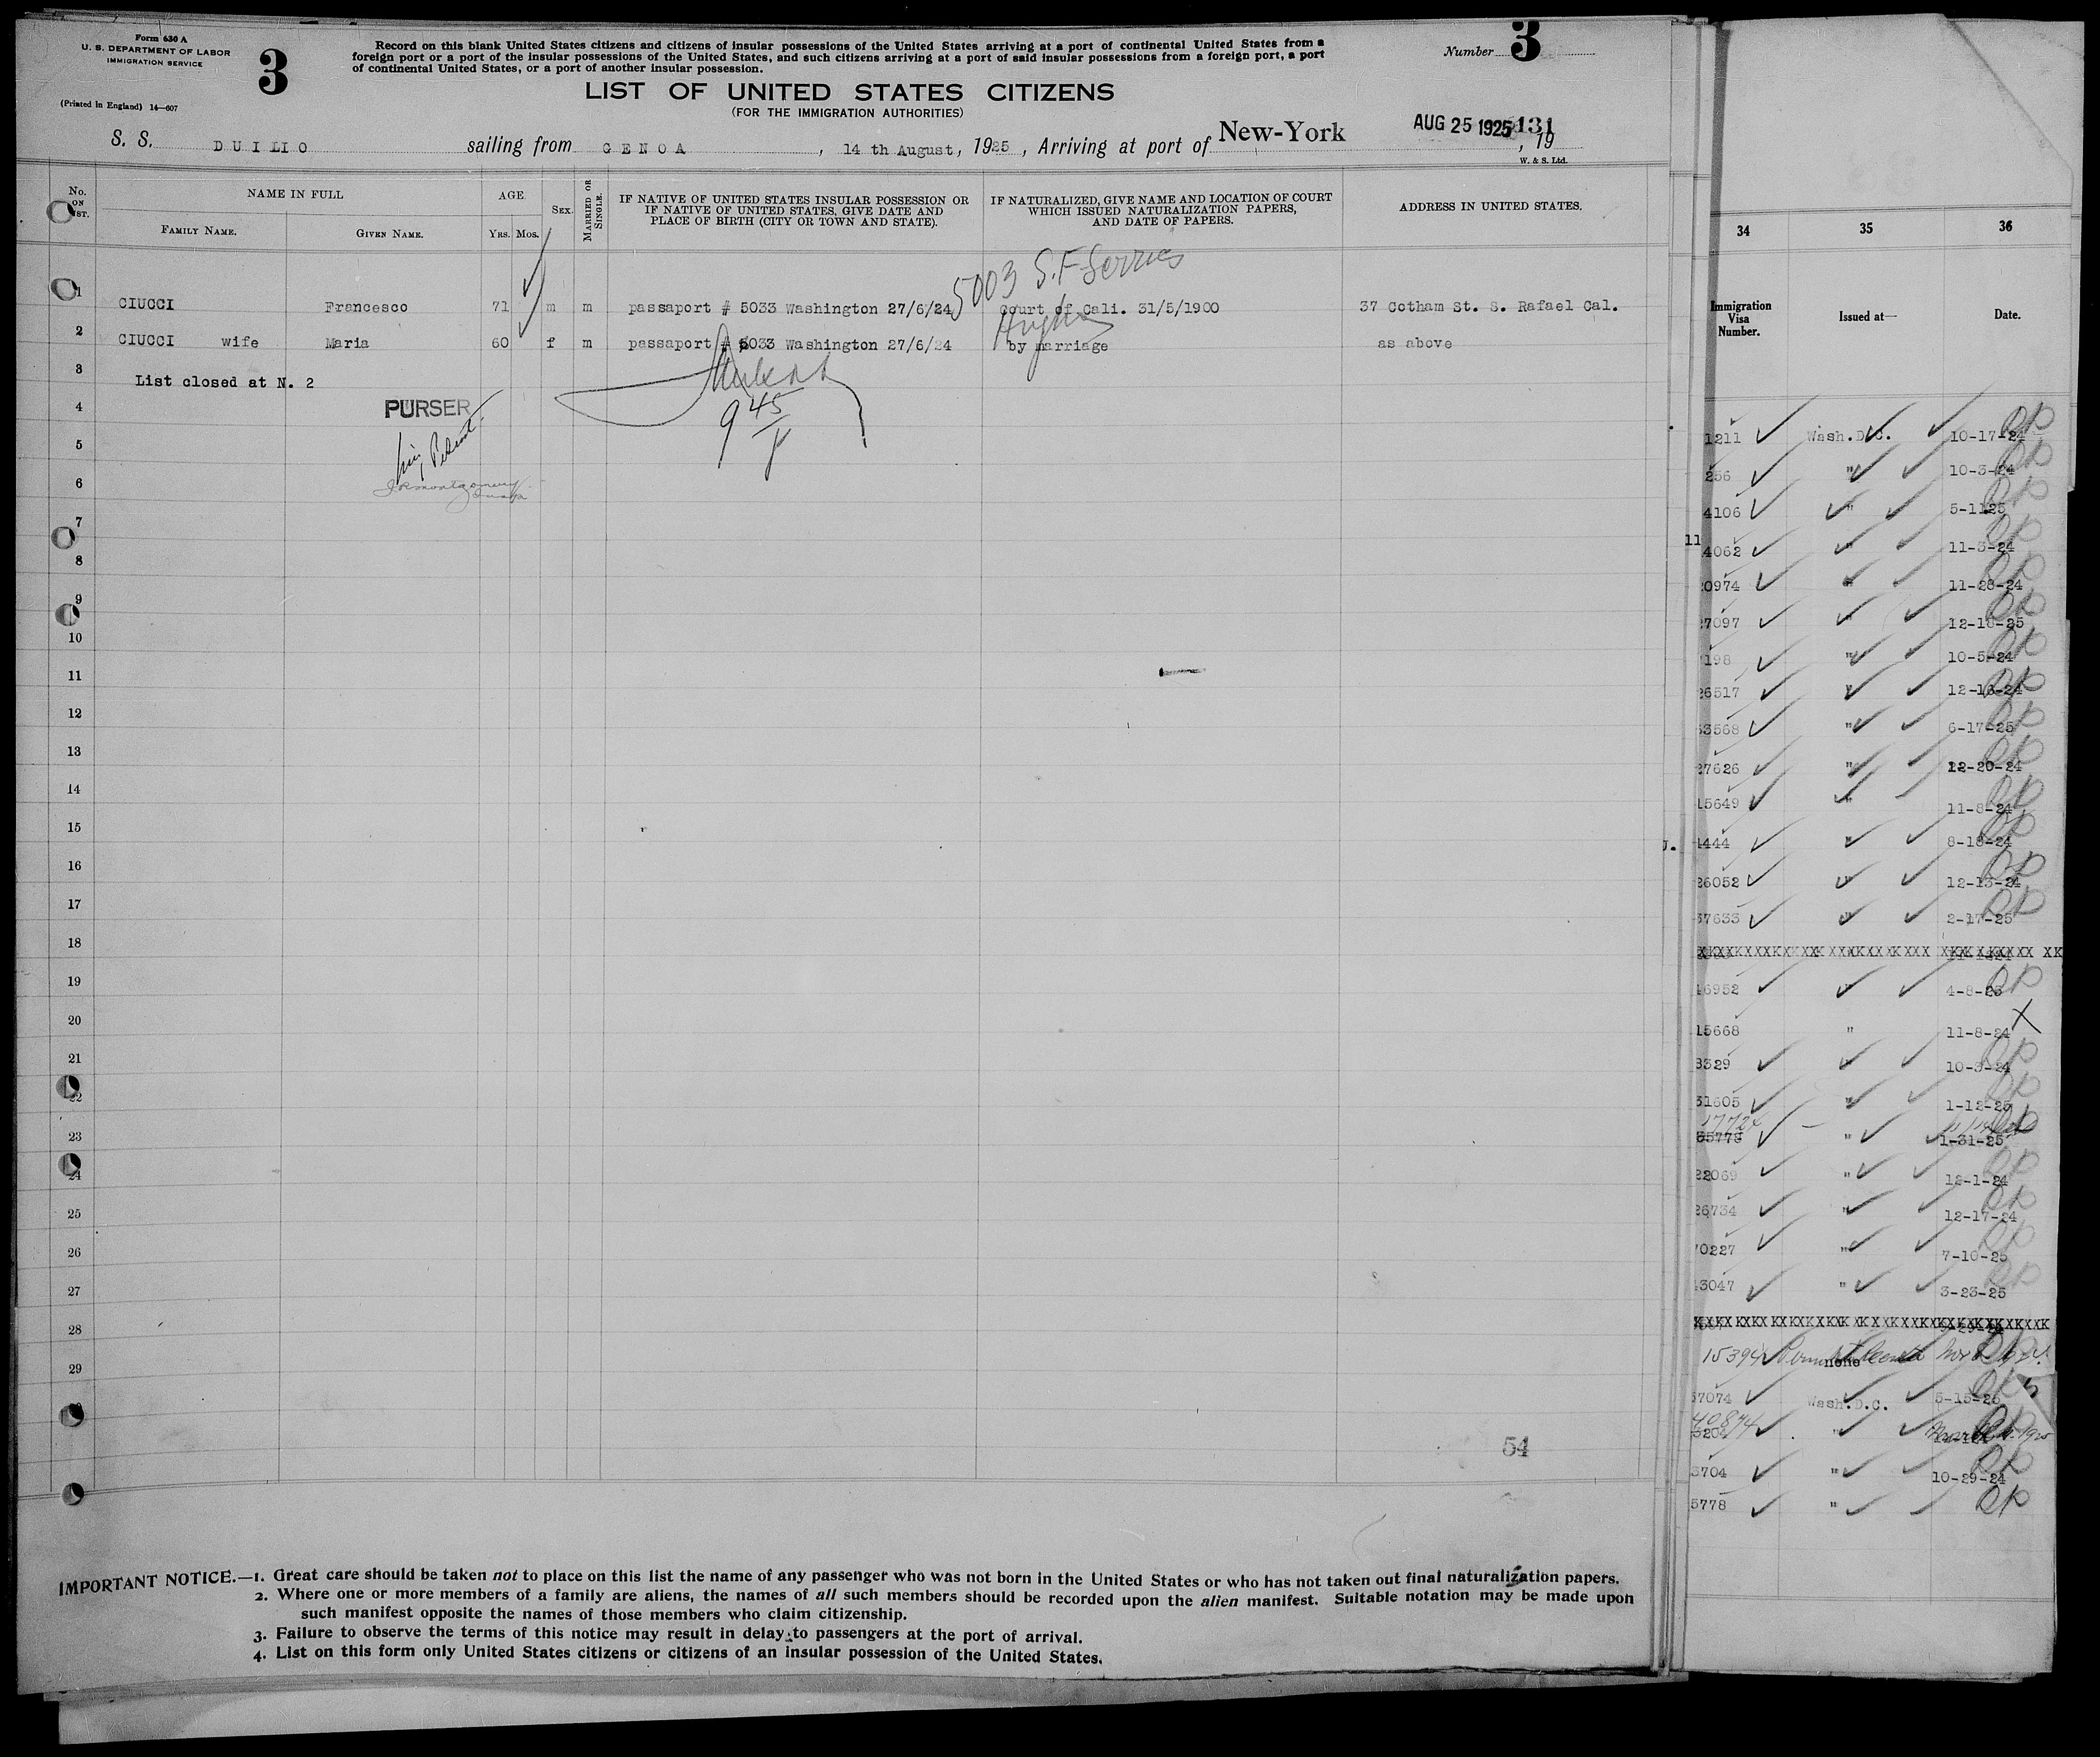 Form 630 A
U. S. DEPARTMENT OF LABOR
IMMIGRATION SERVICE
(Printed in England) 14—607
3
Record on this blank United States citizens and citizens of insular possessions of the United States arriving at a port of continental United States from a
foreign port or a port of the insular possessions of the United States, and such citizens arriving at a port of said insular possessions from a foreign port, a port
of continental United States, or a port of another insular possession.
Number 3
LIST OF UNITED STATES CITIZENS
(FOR THE IMMIGRATION AUTHORITIES)
S. S. DUILIO sailing from GENOA, 14 th August, 1925, Arriving at port of New-York AUG 25 1925 131, 19
W. & S. Ltd.
No. ON LIST.
NAME IN FULL
FAMILY NAME.
GIVEN NAME.
AGE
YRS. MOS.
SEX.
MARRIED OR SINGLE.
IF NATIVE OF UNITED STATES INSULAR POSSESSION OR
IF NATIVE OF UNITED STATES, GIVE DATE AND
PLACE OF BIRTH (CITY OR TOWN AND STATE).
IF NATURALIZED, GIVE NAME AND LOCATION OF COURT
WHICH ISSUED NATURALIZATION PAPERS,
AND DATE OF PAPERS.
ADDRESS IN UNITED STATES.
5003 S.F.
1 CIUCCI Francesco 71 m m passaport # 5033 Washington 27/6/24 Court of Cali. 31/5/1900 37 Cotham St. S. Rafael Cal.
2 CIUCCI wife Maria 60 f m passaport # 5033 Washington 27/6/24 by marriage as above
3 List closed at N. 2
4 PURSER
9 45
5
6
7
8
9
10
11
12
13
14
15
16
17
18
19
20
21
22
23
24
25
26
27
28
29
54
IMPORTANT NOTICE.—1. Great care should be taken not to place on this list the name of any passenger who was not born in the United States or who has not taken out final naturalization papers.
2. Where one or more members of a family are aliens, the names of all such members should be recorded upon the alien manifest. Suitable notation may be made upon
such manifest opposite the names of those members who claim citizenship.
3. Failure to observe the terms of this notice may result in delay to passengers at the port of arrival.
4. List on this form only United States citizens or citizens of an insular possession of the United States.
34 35 36
Immigration
Visa
Number.
Issued at—
Date.
1211 Wash.D.C. 10-17-24
256 " 10-3-24
4106 " 5-1125
11
4062 " 11-3-24
0974 " 11-28-24
7097 " 12-16-25
198 " 10-5-24
26517 " 12-16-24
3568 " 6-17-25
27626 " 12-20-24
15649 " 11-8-24
4444 " 8-18-24
26052 " 12-13-24
37633 " 2-17-25
16952 " 4-8-25
15668 " 11-8-24
3329 " 10-3-24
31605 " 1-12-25
35778 " 1-31-25
22069 " 12-1-24
26734 " 12-17-24
70227 " 7-10-25
43047 " 3-23-25
15394 none
57074 Wash.D.C. 5-15-25
40874
3204 "
3704 " 10-29-24
5778 "